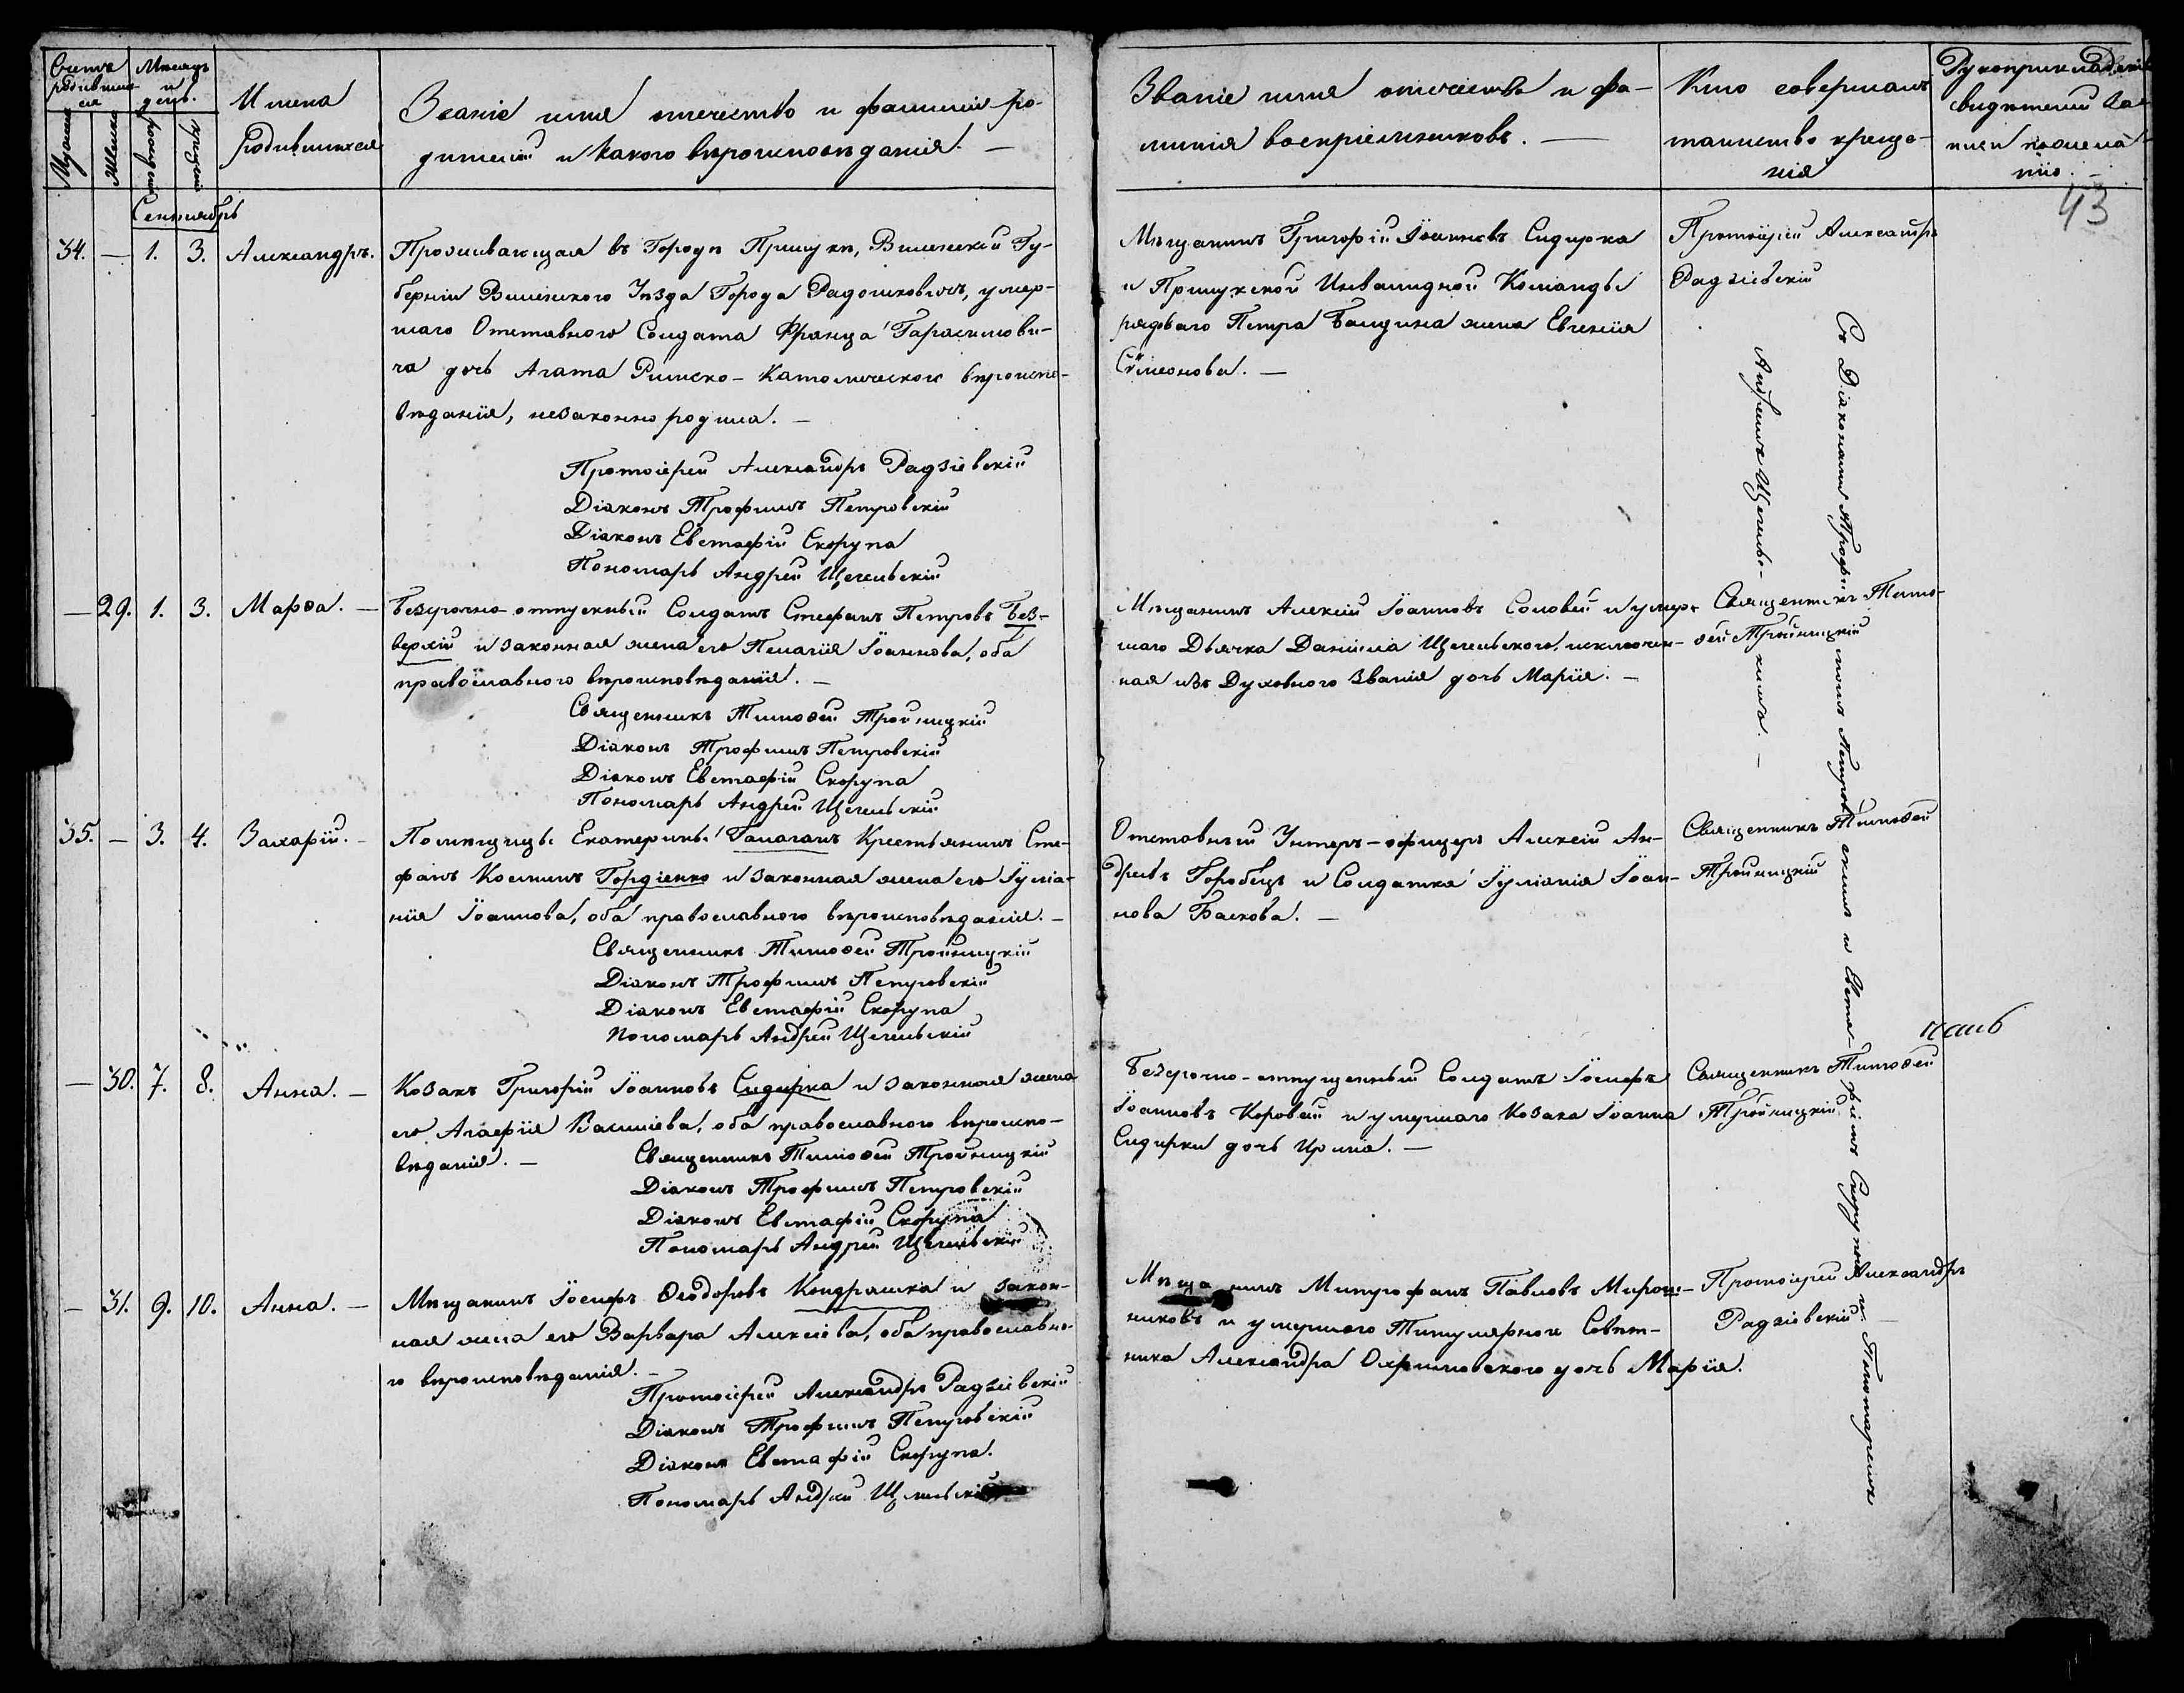 Счетъ родившихся
Мѣсяцъ и день.
Мужеска
Женска
рожденія
крещенія
Имена
родившихся
Званіе имя отечество и фамилія ро-
дителей и какого вѣроисповѣданія. —
Званіе имя отечество и фа-
милія воспріемниковъ. —
Кто совершалъ
таинство креще-
нія
Рукоприкладство
свидѣтелей за-
писи по жела-
нію. —
43
Сентябрь
34. — 1. 3. Александръ.
Проживающая въ Городѣ Прилуки, Виленской Гу-
берніи Виленского Уѣзда Города Радошковичъ, умер-
шаго Отставного Солдата Франца Гарасимови-
ча дочь Агата Римско-Католическаго вѣроиспо-
вѣданія, незаконно родила. —
Протоіерей Александръ Радзіевскій
Діаконъ Трофимъ Петровскій
Діаконъ Евстафій Скорупа
Пономарь Андрей Щегельскій
Мѣщанинъ Григорій Іоанновъ Сидорка
и Прилукской Инвалидной Команды
рядоваго Петра Балдина жена Евгенія
Сѵмеонова. —
Протоіерей Александръ
Радзіевскій
Съ Діаконами Трофимомъ Петровскимъ и Евста-фіемъ Скорупою и Пономаремъ
Андреемъ Щегельс-кимъ. —
— 29. 1. 3. Марѳа. —
Безсрочно-отпускный Солдатъ Стефанъ Петровъ Без-
верхій и законная жена его Пелагія Іоаннова, оба
православного вѣроисповѣданія. —
Священникъ Тимоѳей Тройницкій
Діаконъ Трофимъ Петровскій
Діаконъ Евстафій Скорупа
Пономарь Андрей Щегельскій
Мѣщанинъ Алексій Іоанновъ Соловей и умер-
шаго Дьячка Даніила Щегельского, исключен-
ная изъ Духовного Званія дочь Марія. —
Священникъ Тимо-
ѳей Тройницкій
35. — 3. 4. Захарій. —
Помѣщицы Екатерины Галаганъ Крестьянинъ Сте-
фанъ Косминъ Гордіенко и законная жена его Іуліа-
нія Іоаннова, оба православного вѣроисповѣданія. —
Священникъ Тимоѳей Тройницкій
Діаконъ Трофимъ Петровскій
Діаконъ Евстафій Скорупа
Пономарь Андрей Щегельскій
Отставный Унтеръ-офицеръ Алексій Ан-
дреевъ Горобецъ и Солдатка Іуліанія Іоан-
нова Баскова. —
Священникъ Тимоѳей
Тройницкій
— 30. 7. 8. Анна. —
Козакъ Григорій Іоанновъ Сидорка и законная жена
его Агафія Василіева, оба православного вѣроиспо-
вѣданія. —
Священникъ Тимоѳей Тройницкій
Діаконъ Трофимъ Петровскій
Діаконъ Евстафій Скорупа
Пономарь Андрей Щегельскій
Безсрочно-отпущенный Солдатъ Іосифъ
Іоанновъ Коровай и умершаго Козака Іоанна
Сидорки дочь Ирина. —
Священникъ Тимоѳей
Тройницкій
— 31. 9. 10. Анна. —
Мѣщанинъ Іосифъ Ѳеодоровъ Кондрашка и закон-
ная жена его Варвара Алексіева, оба православно-
го вѣроисповѣданія. —
Протоіерей Александръ Радзіевскій
Діаконъ Трофимъ Петровскій
Діаконъ Евстафій Скорупа.
Пономарь Андрей Щегельскій
Мѣщанинъ Митрофанъ Павловъ Мирош-
никовъ и умершого Титулярного Совѣт-
ника Александра Охримовского дочь Марія.
Протоіерей Александръ
Радзіевскій —